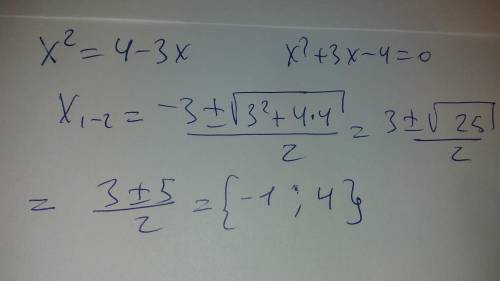 x² = 4 - 3x    x² + 3x - 4 = 0
x₁₋₂ = (-3 ± √(3² + 4·4))/2 = (3 ± √25)/2
= (3 ± 5)/2 = {-1 ; 4}